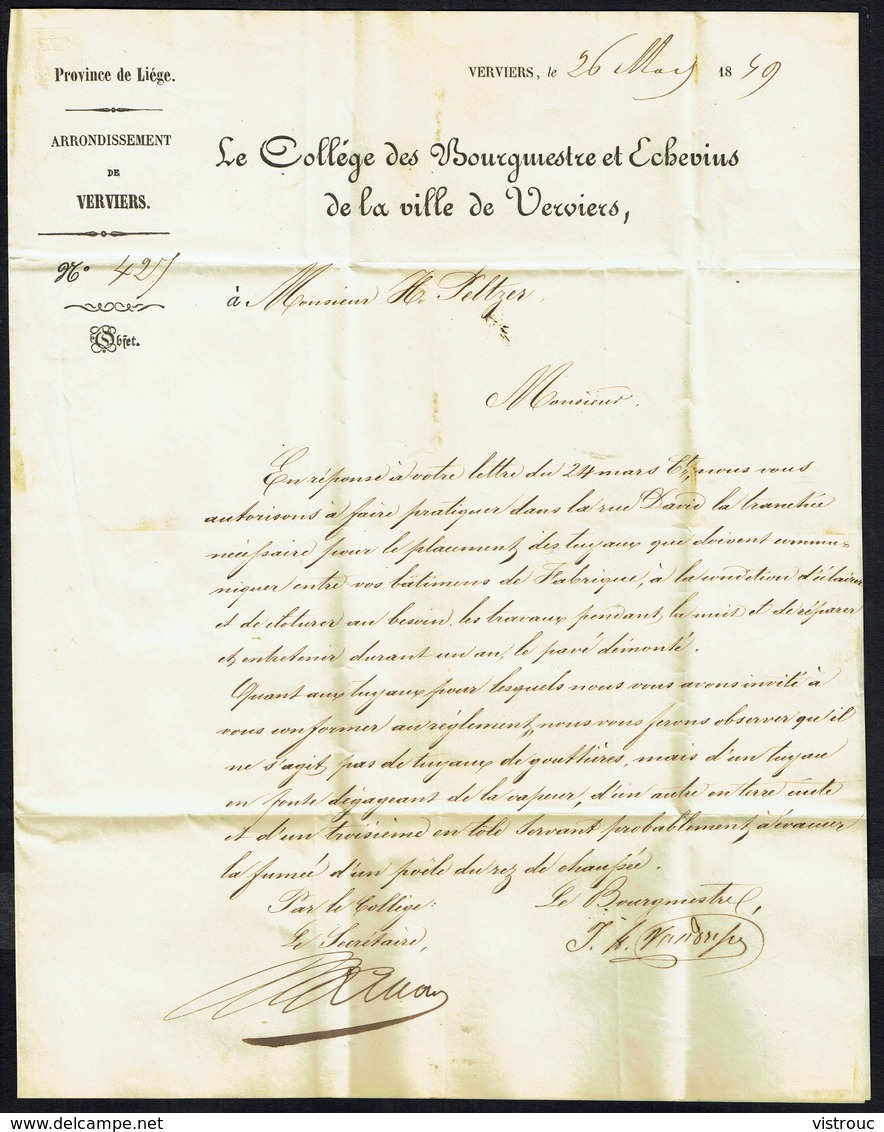 Province de Liége.
VERVIERS, le 26 Mars 1849
ARRONDISSEMENT
DE
VERVIERS.
Le Collége des Bourgmestre et Echevins
de la ville de Verviers,
N° 427
à Monsieur H. Peltzer.
Objet.
Monsieur.
En réponse à votre lettre du 24 mars Ct, nous vous
autorisons à faire pratiquer dans la rue David la tranchée
nécessaire pour le placement des tuyaux que doivent commu-
niquer entre vos bâtimens de Fabrique, à la condition d'éclairer
et de cloturer au besoin les travaux pendant la nuit et de réparer
et entretenir durant un an, le pavé démonté.
Quant aux tuyaux pour lesquels nous vous avons invité à
vous conformer au réglement, nous vous ferons observer qu'il
ne s'agit pas de tuyaux de gouttières, mais d'un tuyau
en fonte dégageant de la vapeur, d'un autre en terre cuite
et d'un troisième en tôle servant probablement à évacuer
la fumée d'un poële du rez de chaussée.
Par le Collége: Le Bourgmestre,
Le Secrétaire,
delcampe.net
vistrouc